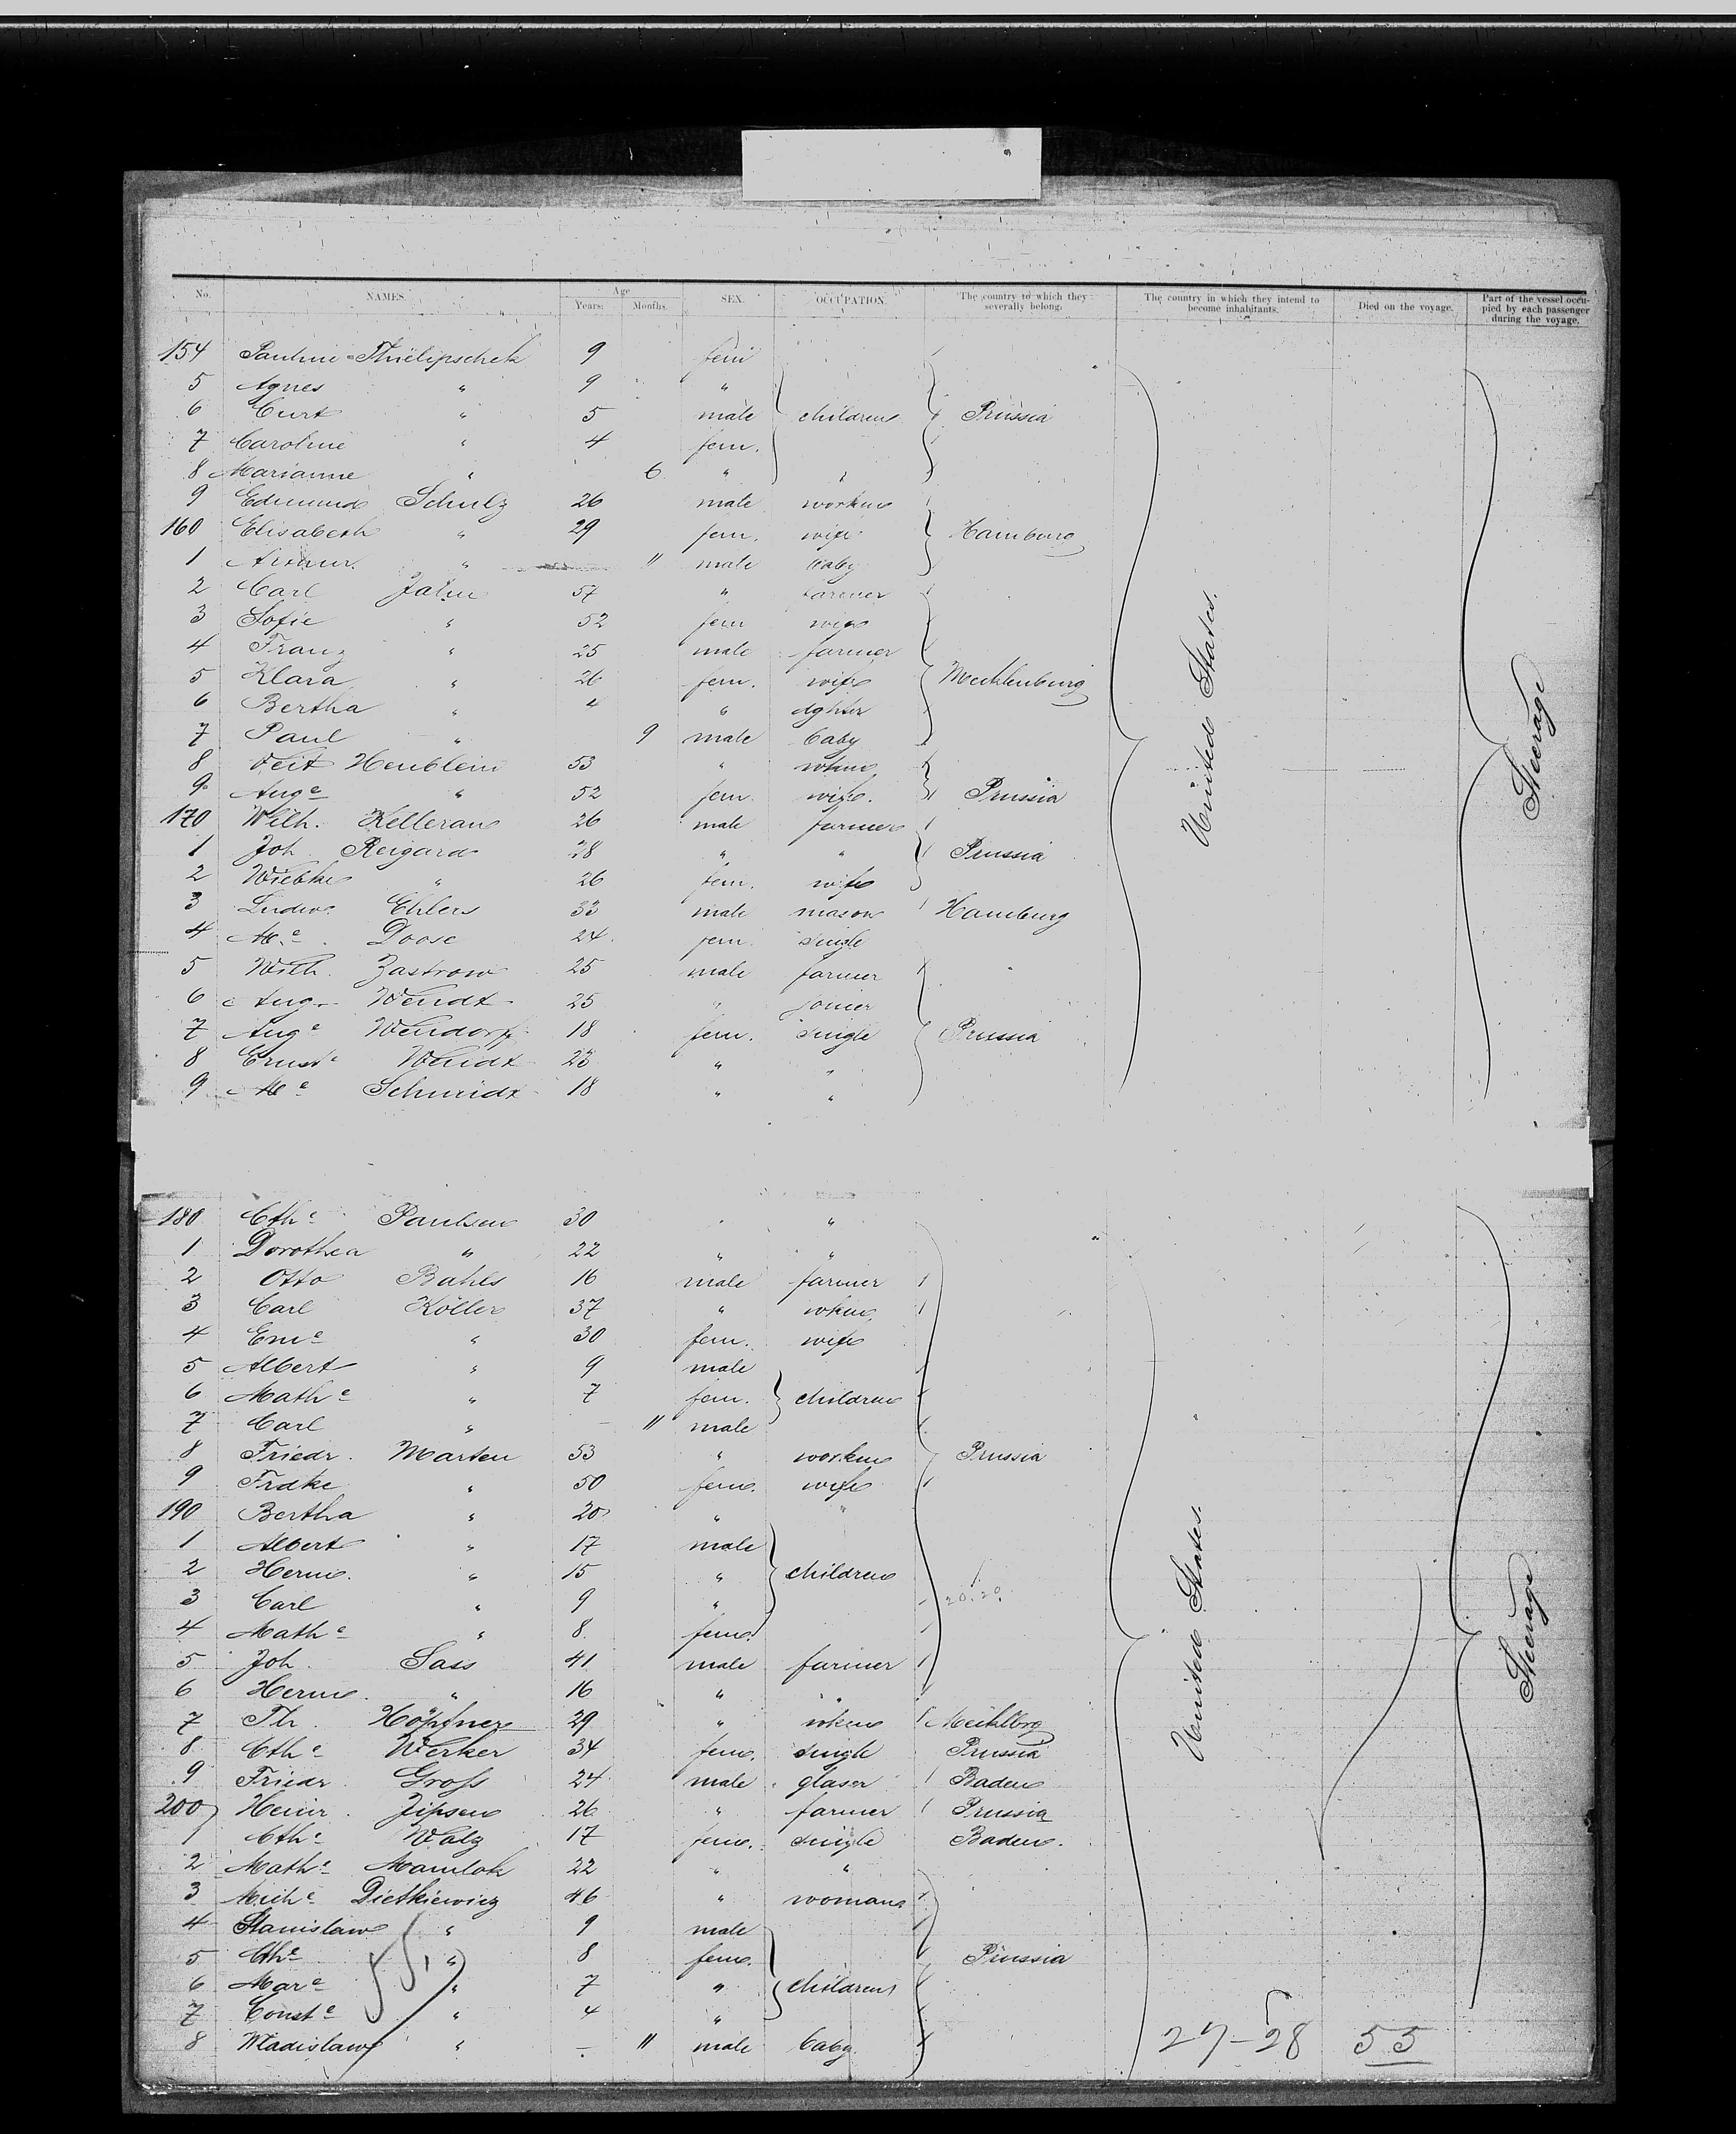 No. NAMES. Age Years. Months. SEX. OCCUPATION. The country to which they severally belong. The country in which they intend to become inhabitants. Died on the voyage. Part of the vessel occupied by each passenger during the voyage.
154 Pauline Thielipschek 9 fem
5 Agnes " 9 "
6 Curt " 5 male children Prussia
7 Caroline " 4 fem.
8 Marianne " 6 " "
9 Edmund Schulz 26 male workm
160 Elisabeth " 29 fem. wife Hamburg
1 " 11 male baby
2 Carl Jahn 57 " farmer
3 Sofie " 52 fem wife
4 Franz " 25 male farmer
5 Klara " 26 fem. wife Mecklenburg
6 Bertha " 4 " dghter
7 Paul " 9 male baby
8 Veit Heublein 53 " wkm
9 Auge " 52 fem. wife. Prussia
170 Wilh. Kelleran 26 male farmer
1 Joh. Reigard 28 " " Prussia
2 Wiebke " 26 fem. wife
3 Ludw. Ehlers 33 male mason Hamburg
4 Me. Doose 24 fem. single
5 Wilh. Zastrow 25 male farmer
6 Aug. Wendt 25 " joiner
7 Auge Wendorff 18 fem. single Prussia
8 Ernste Wendt 23 " "
9 Me Schmidt 18 " "
United States.
Steerage
180 Cthe Paulsen 30 "
1 Dorothea " 22 " "
2 Otto Bahls 16 male farmer
3 Carl Köller 37 " wkm
4 Eme " 30 fem. wife
5 Albert " 9 male
6 Mathe " 7 fem. children
7 Carl " - 11 male
8 Friedr. Marten 53 " workm Prussia
9 Frdke " 50 fem. wife
190 Bertha " 20 " "
1 Albert " 17 male
2 Herm. " 15 " children
3 Carl " 9 " 20.20.
4 Mathe " 8 fem.
5 Joh. Sass 41 male farmer
6 Herm. " 16 " "
7 Th. Höpfner 29 " wkm Mecklbrg
8 Cthe Werker 34 fem. single Prussia
9 Friedr. Groß 24 male glaser Baden
200 Heinr. Jipsen 26 " farmer Prussia
1 Cthe Walz 17 fem. single Baden.
2 Mathe Mamlok 22 " "
3 Miche Dietkiewicz 46 " woman
4 Stanislaw " 9 male
5 Cthe " 8 fem. Prussia
6 Mare " 7 " children
7 Conste " 4 "
8 Wladislaw " - 11 male baby
United States.
Steerage
55
27-28 55